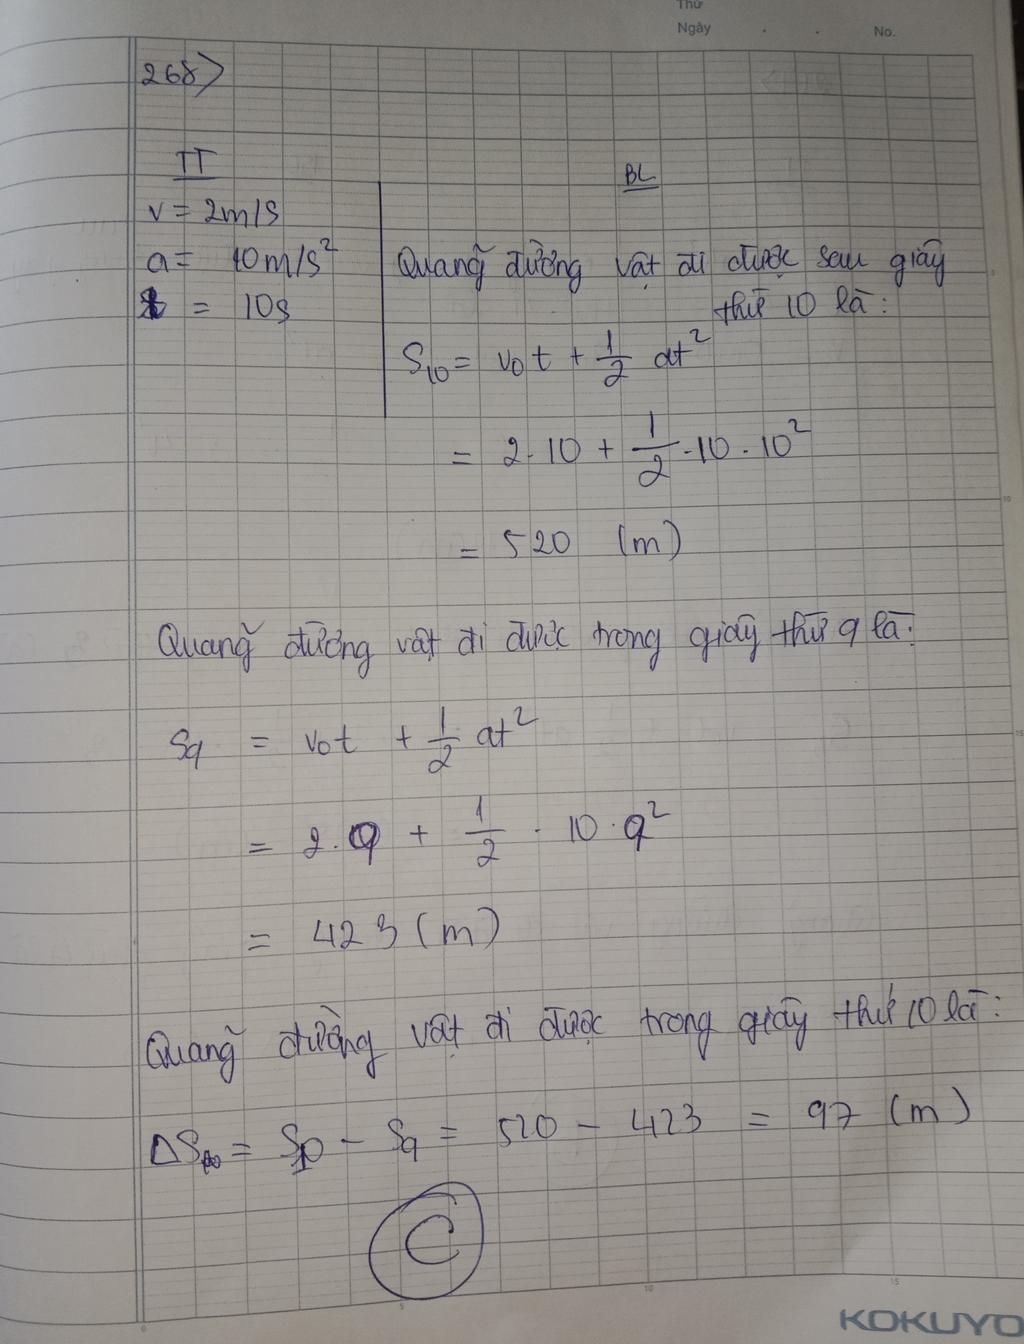 Thứ
Ngày . . No.
268>
TT
BL
v = 2m/s
a = 10m/s²
t = 10s
Quãng đường vật đi được sau giây
thứ 10 là:
S₁₀ = v₀t + 1/2 at²
= 2.10 + 1/2 . 10 . 10²
= 520 (m)
Quãng đường vật đi được trong giây thứ 9 là:
S₉ = v₀t + 1/2 at²
= 2.9 + 1/2 . 10 . 9²
= 423 (m)
Quãng đường vật đi được trong giây thứ 10 là:
ΔS₁₀ = S₁₀ - S₉ = 520 - 423 = 97 (m)
C
5 10 15
KOKUYO